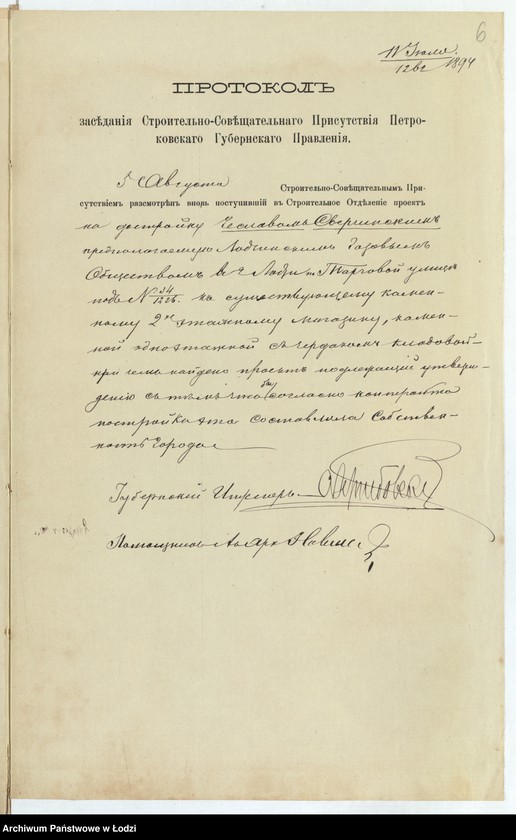 6
11 Июля 1894
12 62
ПРОТОКОЛЪ
засѣданія Строительно-Совѣщательнаго Присутствія Петро-
ковскаго Губернскаго Правленія.
5 Августа Строительно-Совѣщательнымъ При-
сутствіемъ разсмотрѣнъ вновь поступившій въ Строительное Отдѣленіе проектъ
на достройку Чеславомъ Сверчинскимъ
предполагаемую Лодзинскимъ Газовымъ
Обществомъ въ г. Лодзи по Тарговой улицѣ
подъ № 34 къ существующему камен-
ному 2хъ этажному магазину, камен-
ной одноэтажной съ чердакомъ кладовой -
при чемъ найдено проектъ подлежащій утверж-
денію съ тѣмъ, чтобы согласно контракта
постройка эта составляла собствен-
ность города
Губернскій Инженеръ
Помощникъ
Archiwum Państwowe w Łodzi